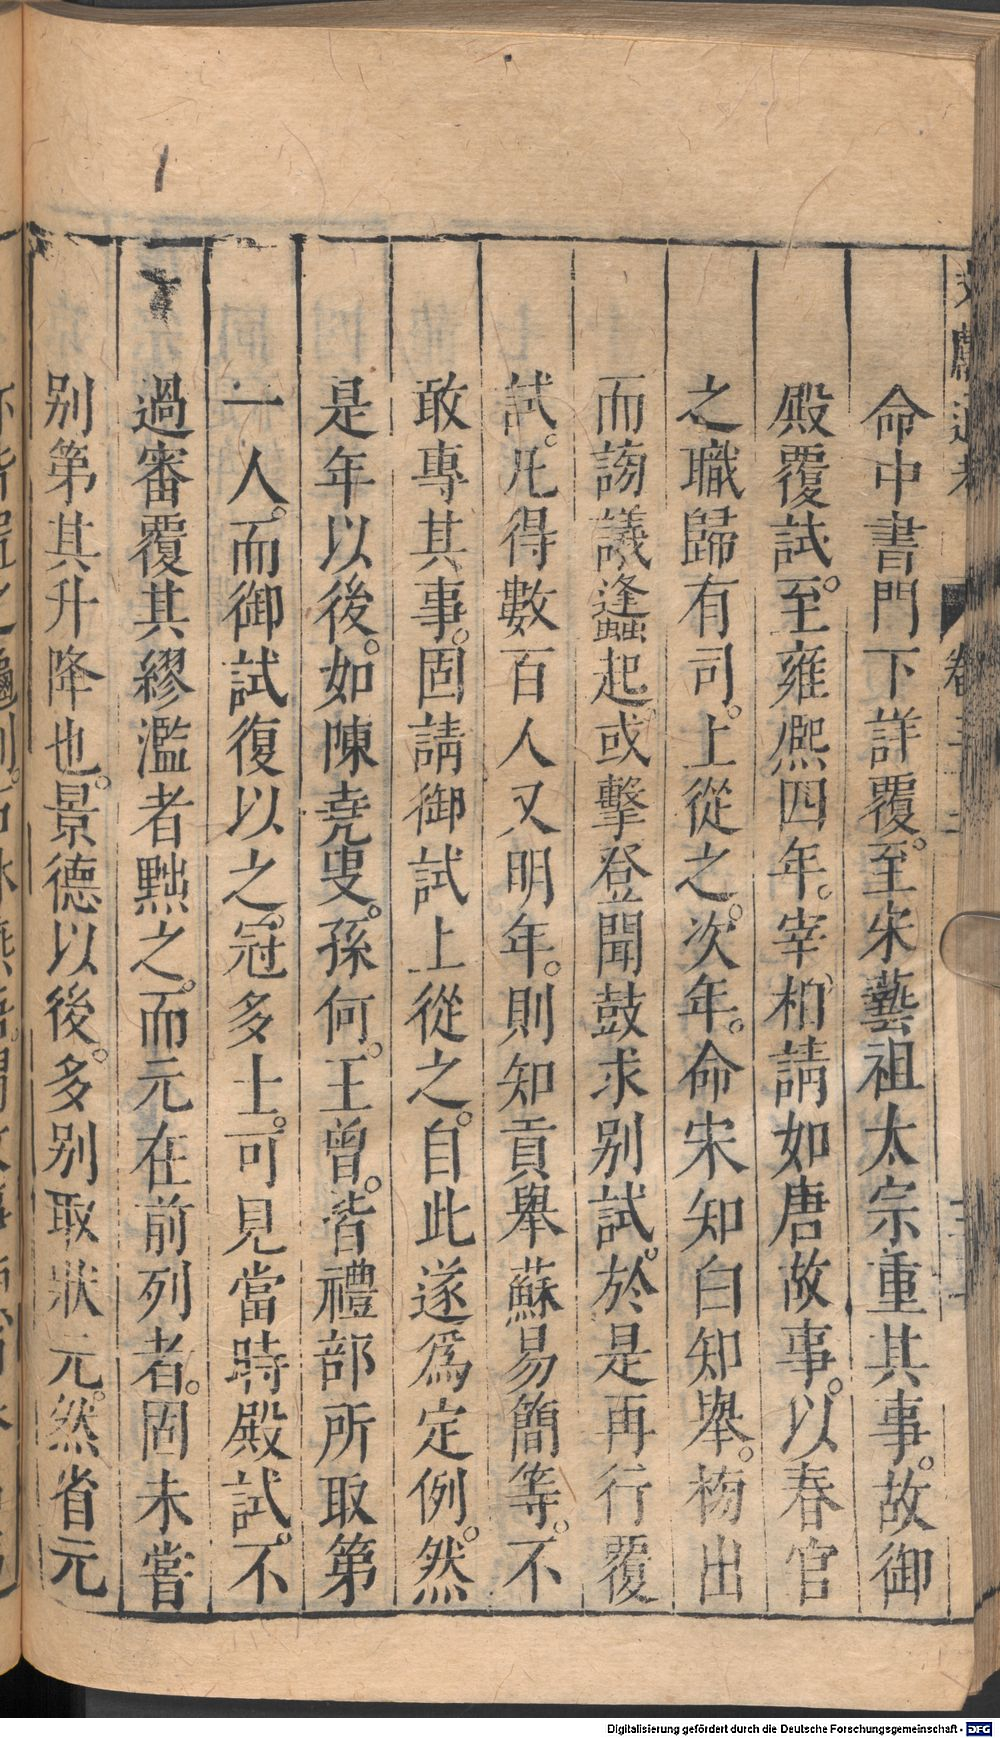 文獻通考 卷三十
命中書門下詳覆。至宋藝祖太宗重其事。故御
殿覆試。至雍熙四年。宰相請如唐故事。以春官
之職歸有司。上從之。次年。命宋知白知舉。榜出
而謗議蠭起。或擊登聞鼓求别試。於是再行覆
試。凡得數百人又明年。則知貢舉蘇易簡等。不
敢專其事。固請御試上從之。自此遂爲定例。然
是年以後。如陳堯叟。孫何。王曾。皆禮部所取第
一人。而御試復以之。冠多士。可見當時殿試。不
過審覆其繆濫者黜之。而元在前列者。固未嘗
别第其升降也。景德以後。多别取狀元。然省元
Digitalisierung gefördert durch die Deutsche Forschungsgemeinschaft - DFG